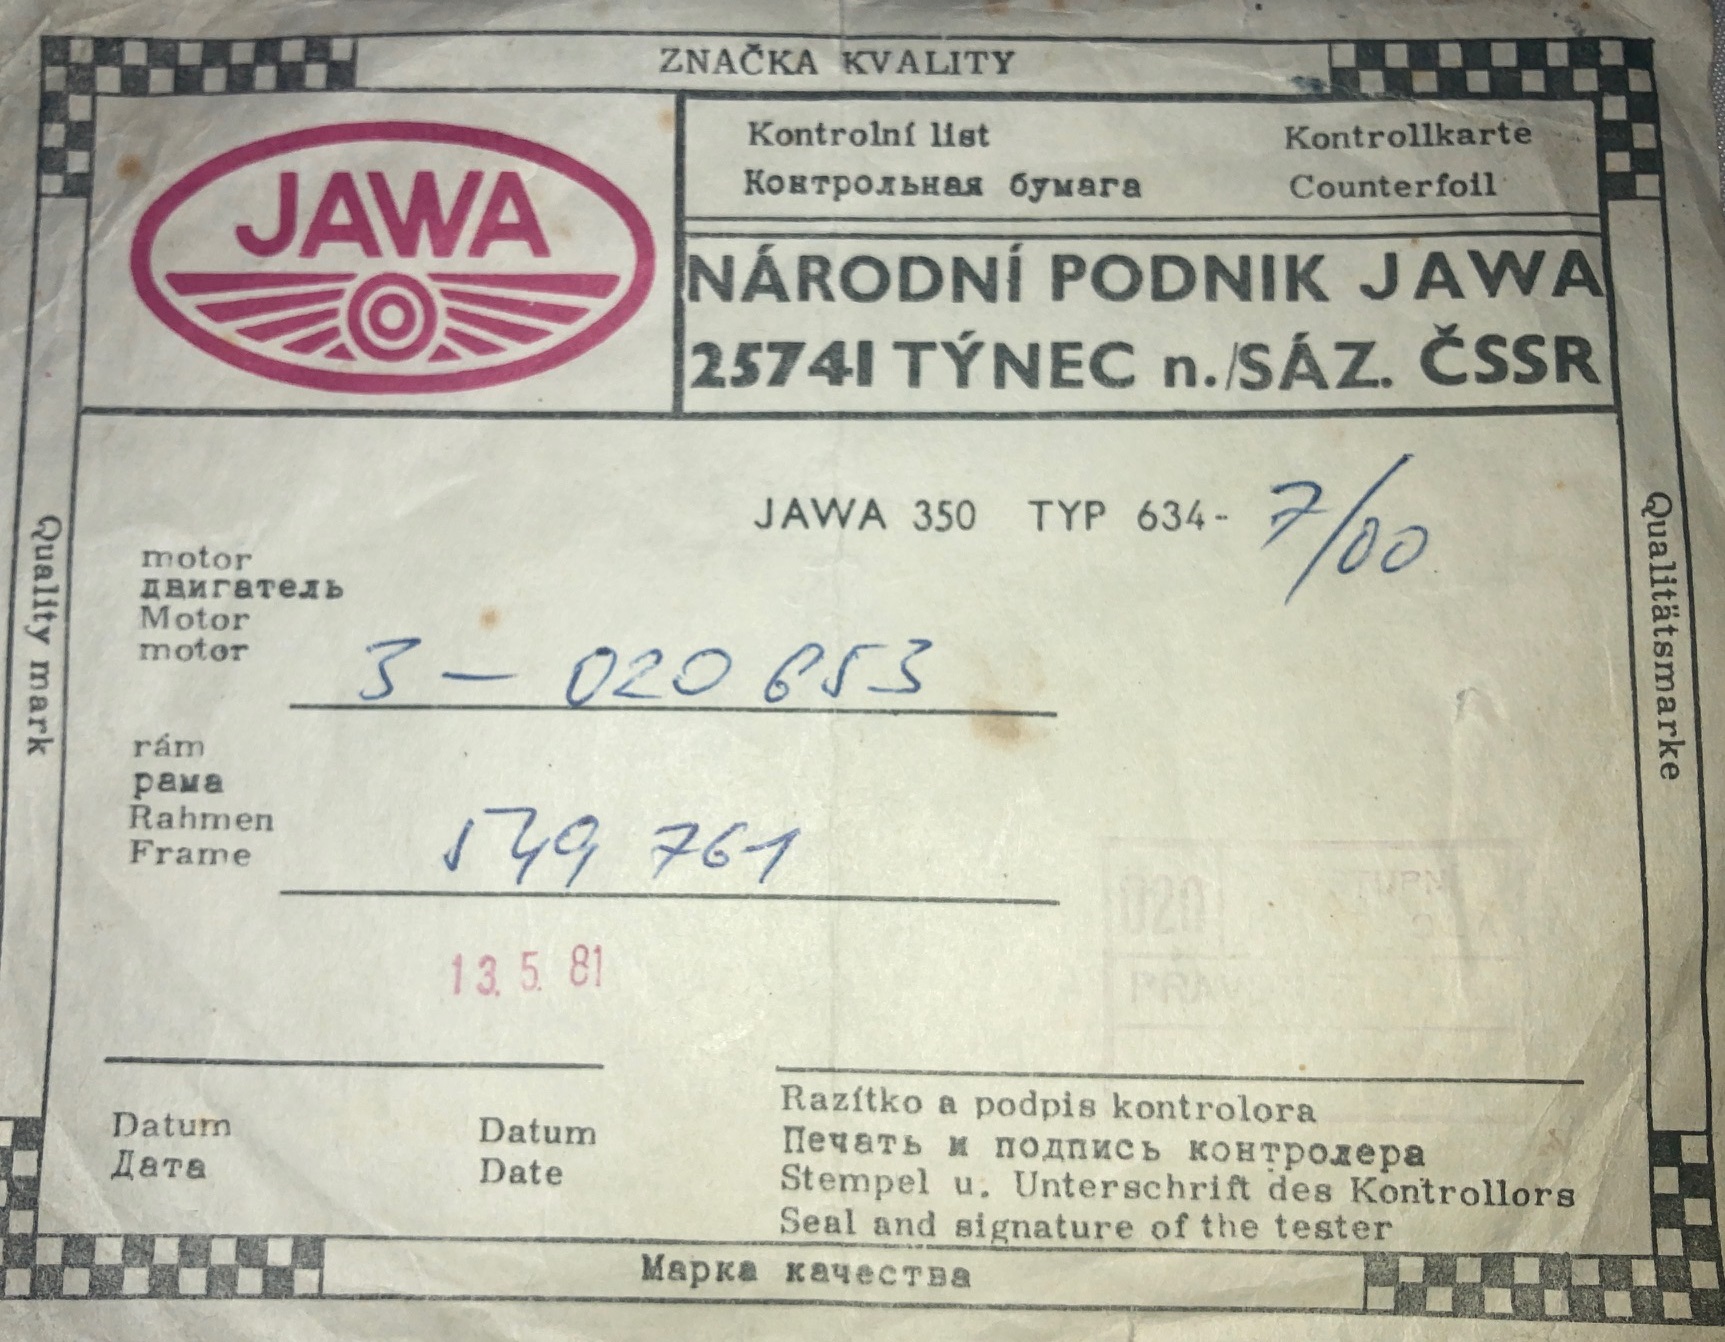 ZNAČKA KVALITY
JAWA
Kontrolní list Kontrollkarte
Контрольная бумага Counterfoil
NÁRODNÍ PODNIK JAWA
25741 TÝNEC n./SÁZ. ČSSR
JAWA 350 TYP 634- 7/00
motor
двигатель
Motor
motor
3 - 020 653
rám
рама
Rahmen
Frame
549 761
13. 5. 81
020
Datum Datum
Дата Date
Razítko a podpis kontrolora
Печать и подпись контролера
Stempel u. Unterschrift des Kontrollors
Seal and signature of the tester
Марка качества
Quality mark
Qualitätsmarke